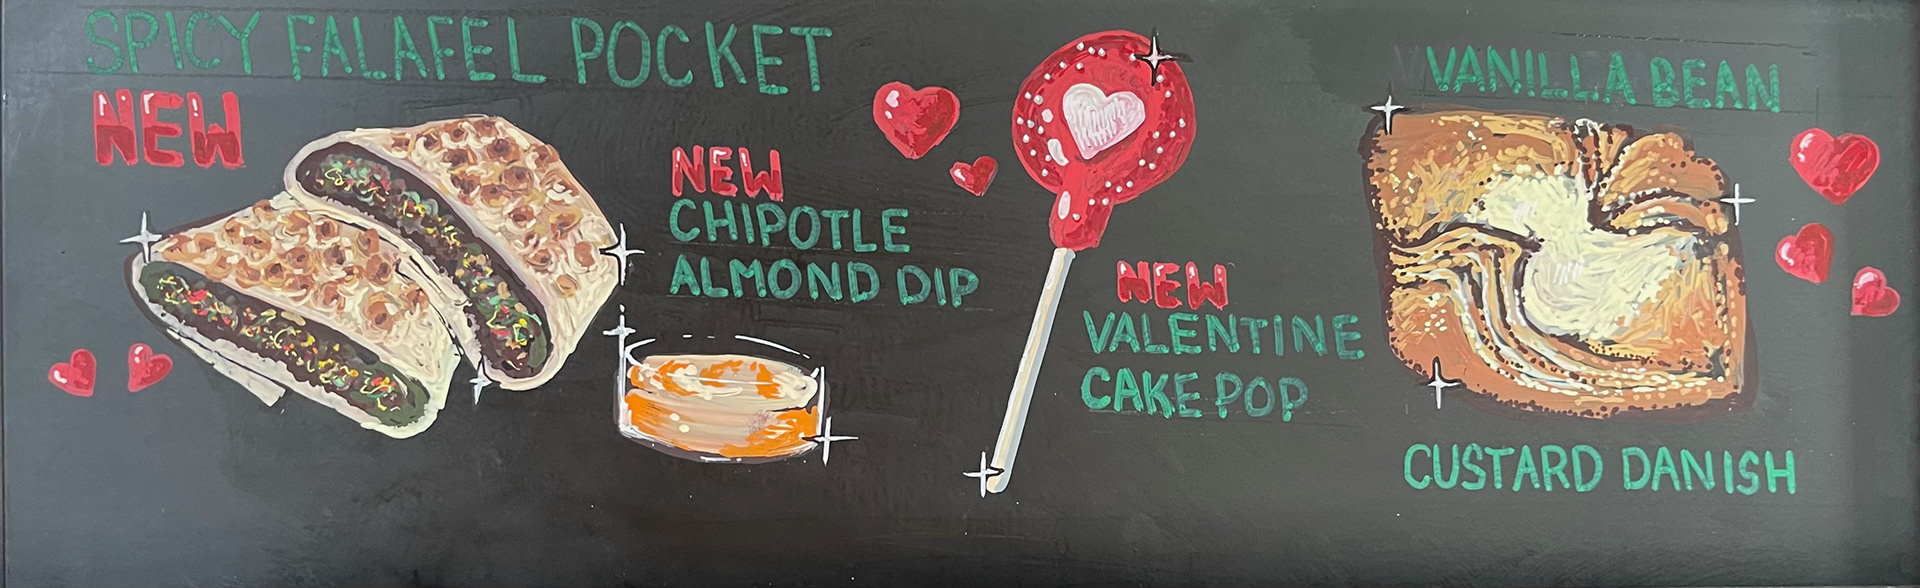 SPICY FALAFEL POCKET
NEW
NEW
CHIPOTLE
ALMOND DIP
NEW
VALENTINE
CAKE POP
VANILLA BEAN
CUSTARD DANISH